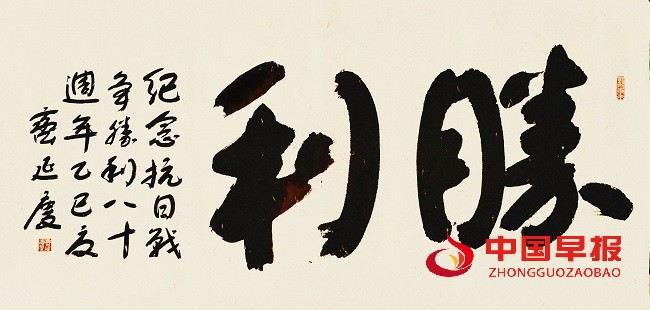 勝利
紀念抗日戰
爭勝利八十
週年乙巳夏
延慶
中国早报
ZHONGGUOZAOBAO